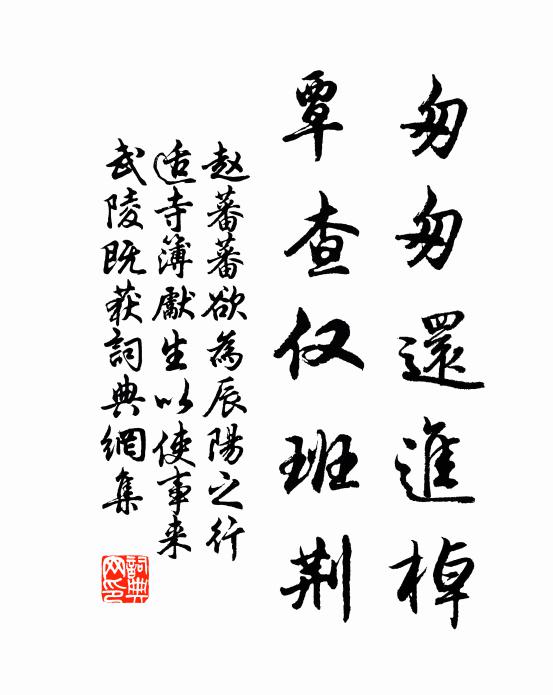 匆匆還進棹
覃查仅班荆
赵蕃蕃欲為辰陽之行
适寺簿獻生以使事来
武陵既获詞典網集
詞典网印